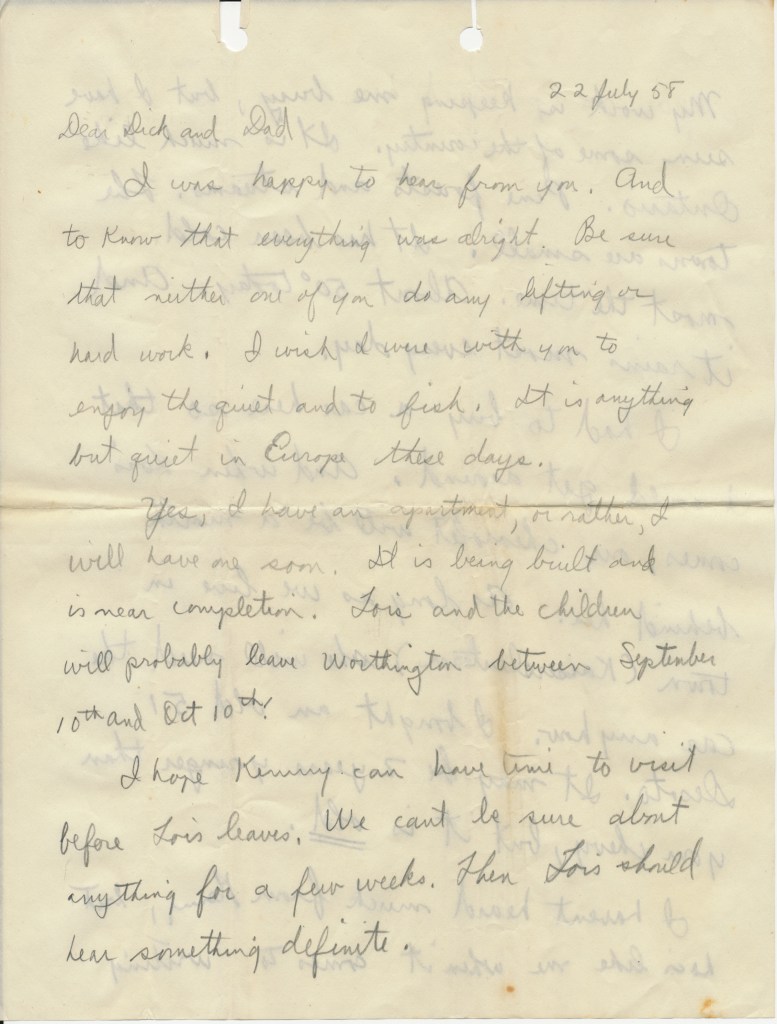 22 July 58
Dear Dick and Dad
I was happy to hear from you. And
to know that everything was alright. Be sure
that neither one of you do any lifting or
hard work. I wish I were with you to
enjoy the quiet and to fish. It is anything
but quiet in Europe these days.
Yes, I have an apartment, or rather, I
will have one soon. It is being built and
is near completion. Lois and the children
will probably leave Worthington between September
10th and Oct 10th!
I hope Kenny can have time to visit
before Lois leaves. We cant be sure about
anything for a few weeks. Then Lois should
hear something definite.